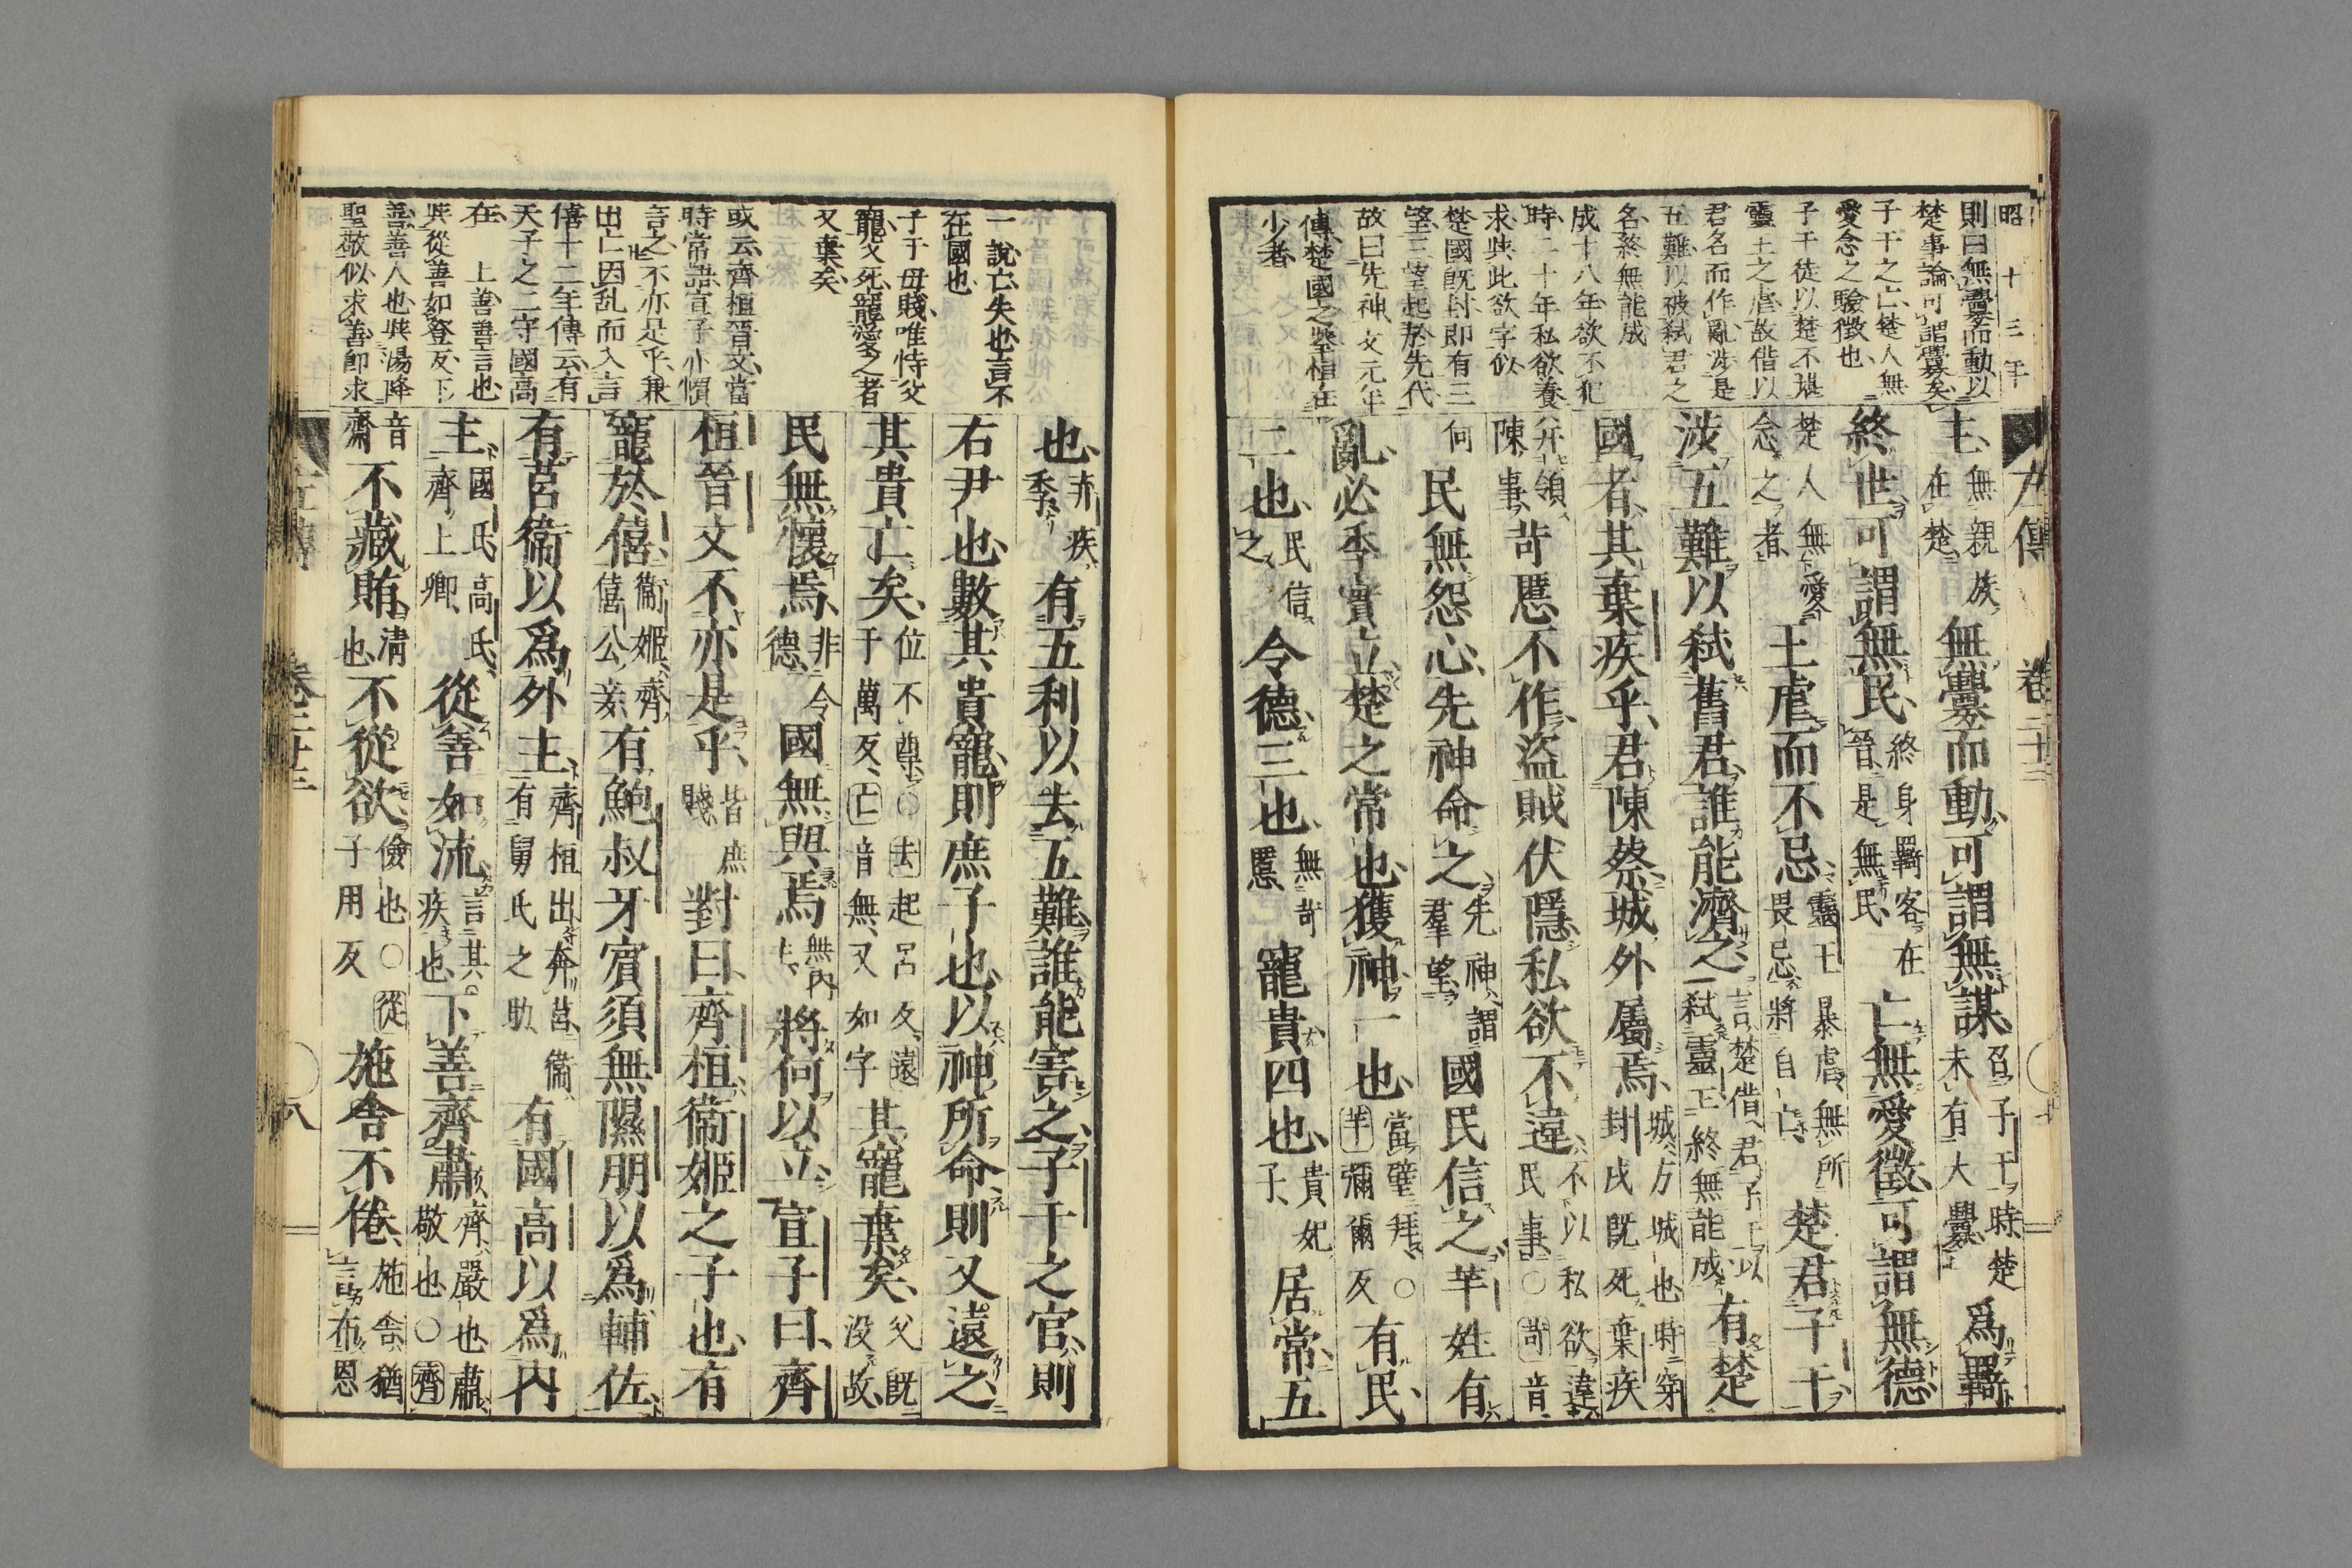 昭十三年
則曰無釁而動以
楚事論可謂釁矣
子干之亡楚人無
愛念之驗徴也
子干徒以楚不堪
靈王之虐故借以
君名而作亂渉是
五難以被弑君之
名終無能成
成十八年欲不犯
時二十年私欲養
求與此欲字似
楚國既封即有三
望三望起於先代
故曰先神文元年
傳楚國之擧恒在
少者
左傳 卷二十三 七
主無親族在楚無釁而動可謂無謀召子干時楚未有大釁爲羈
終世可謂無民終身羈客在晉是無民亡無愛徴可謂無德
楚人無愛念之者王虐而不忌靈王暴虐無所畏忌將自亡楚君子干
渉五難以弑舊君誰能濟之言楚借君子干以弑靈王終無能成有楚
國者其棄疾乎君陳蔡城外屬焉城方城也時穿封戌既死棄疾
并領陳事苛慝不作盜賊伏隱私欲不違不以私欲違民事○苛音
何民無怨心先神命之先神謂羣望國民信之芈姓有
亂必季實立楚之常也獲神一也當璧拜○芈彌爾反有民
二也民信之令德三也無苛慝寵貴四也貴妃子居常五
也弃疾季有五利以去五難誰能害之子干之官則
右尹也數其貴寵則庶子也以神所命則又遠之
其貴亡矣位不尊○去起呂反遠于萬反亡音無又如字其寵棄矣父既没故
民無懷焉非令德國無與焉無内主將何以立宣子曰齊
桓晉文不亦是乎皆庶賤對曰齊桓衞姬之子也有
寵於僖衞姬齊僖公妾有鮑叔牙賓須無隰朋以爲輔佐
有莒衞以爲外主齊桓出奔莒衞有舅氏之助有國高以爲内
主國氏高氏齊上卿從善如流言其疾也下善齊肅齊嚴也肅敬也○齊
音齋不藏賄清也不從欲儉也○從子用反施舍不倦施舍猶言布恩
一説亡失也言不
在國也
子干母賤唯恃父
寵父死寵愛之者
又棄矣
或云齊桓晉文當
時常語宣子亦慣
言之不亦是乎兼
出亡因乱而入言也
僖十二年傳云有
天子之二守國高
在 上善善言也
與從善如登反下
善善人也與湯降
聖敬似求善即求
左傳 卷二十三 八